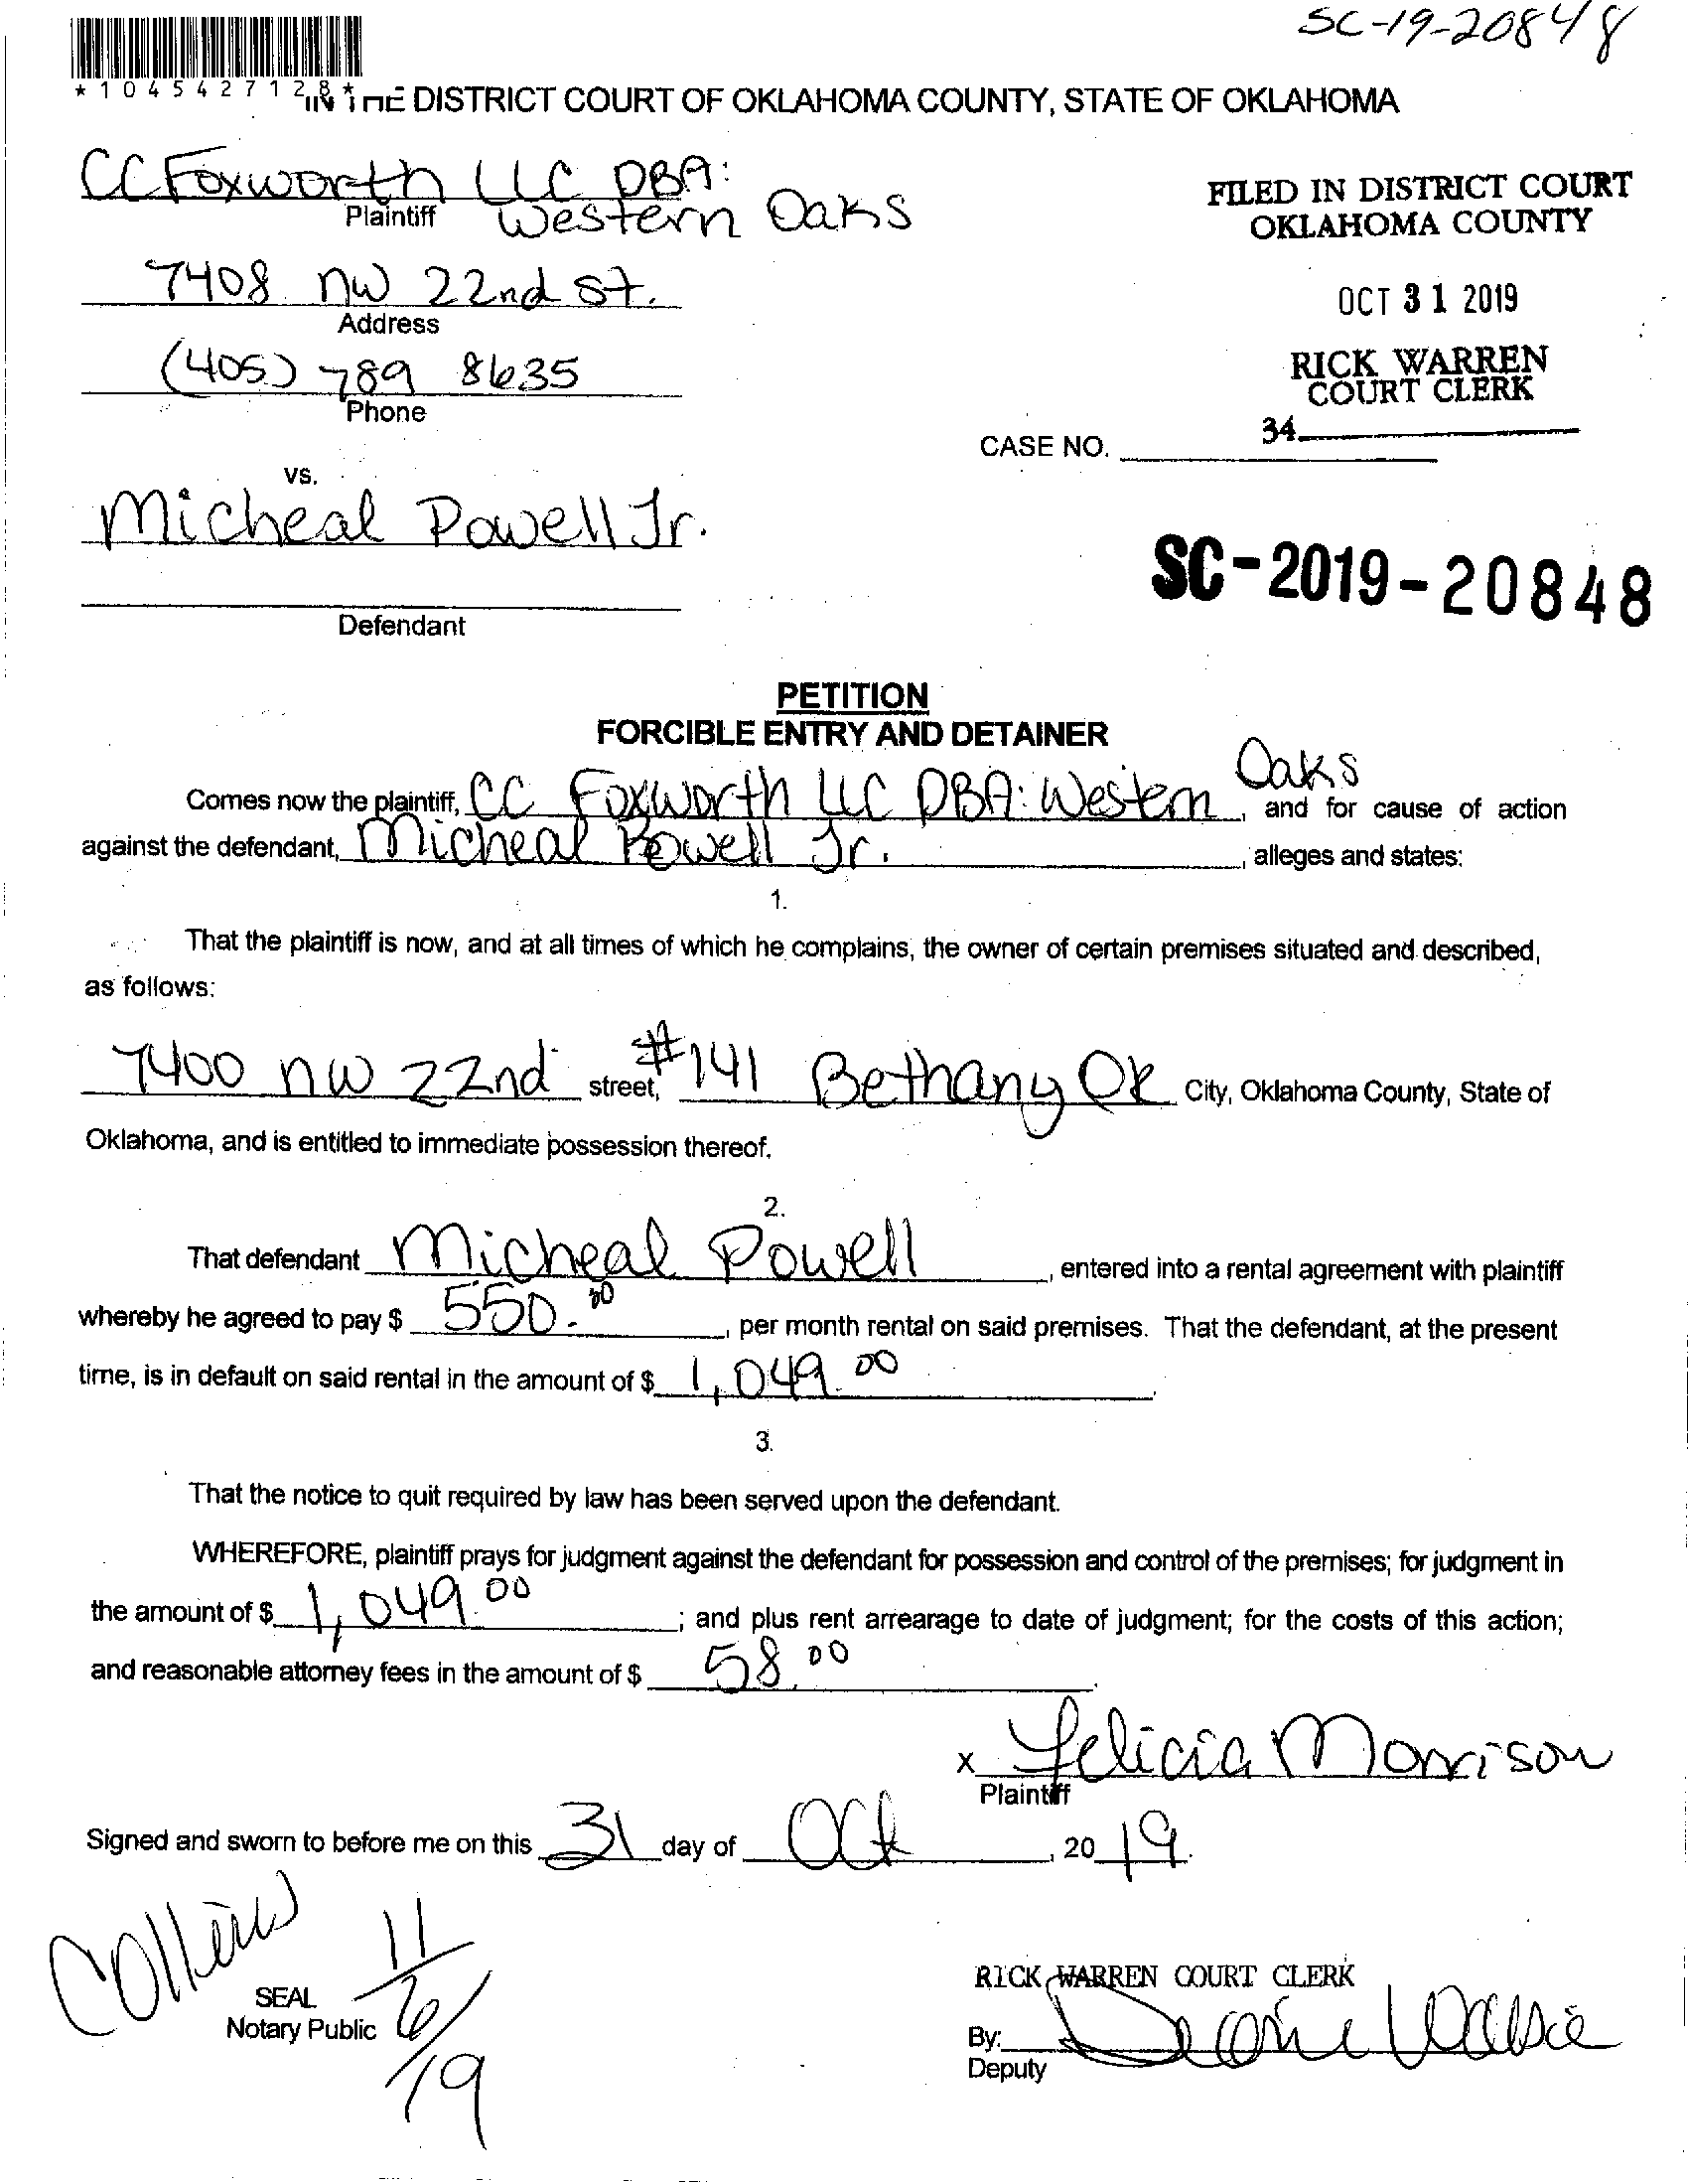 SC-19-20848
*1045427128*
IN THE DISTRICT COURT OF OKLAHOMA COUNTY, STATE OF OKLAHOMA
CC Foxworth LLC DBA:
Plaintiff Western Oaks
FILED IN DISTRICT COURT
OKLAHOMA COUNTY
7408 NW 22nd St.
Address
OCT 31 2019
(405) 789 8635
Phone
RICK WARREN
COURT CLERK
34
CASE NO.
vs.
Micheal Powell Jr.
SC-2019-20848
Defendant
PETITION
FORCIBLE ENTRY AND DETAINER
Comes now the plaintiff, CC Foxworth LLC DBA: Western Oaks, and for cause of action
against the defendant, Micheal Powell Jr., alleges and states:
1.
That the plaintiff is now, and at all times of which he complains, the owner of certain premises situated and described,
as follows:
7400 NW 22nd street, #141 Bethany OK City, Oklahoma County, State of
Oklahoma, and is entitled to immediate possession thereof.
2.
That defendant Micheal Powell, entered into a rental agreement with plaintiff
whereby he agreed to pay $ 550.00, per month rental on said premises. That the defendant, at the present
time, is in default on said rental in the amount of $ 1,049.00.
3.
That the notice to quit required by law has been served upon the defendant.
WHEREFORE, plaintiff prays for judgment against the defendant for possession and control of the premises; for judgment in
the amount of $ 1,049.00; and plus rent arrearage to date of judgment; for the costs of this action;
and reasonable attorney fees in the amount of $ 58.00.
x Felicia Morrison
Plaintiff
Signed and sworn to before me on this 31 day of Oct, 2019.
Collins
11/6/19
SEAL
Notary Public
RICK WARREN COURT CLERK
By:
Deputy